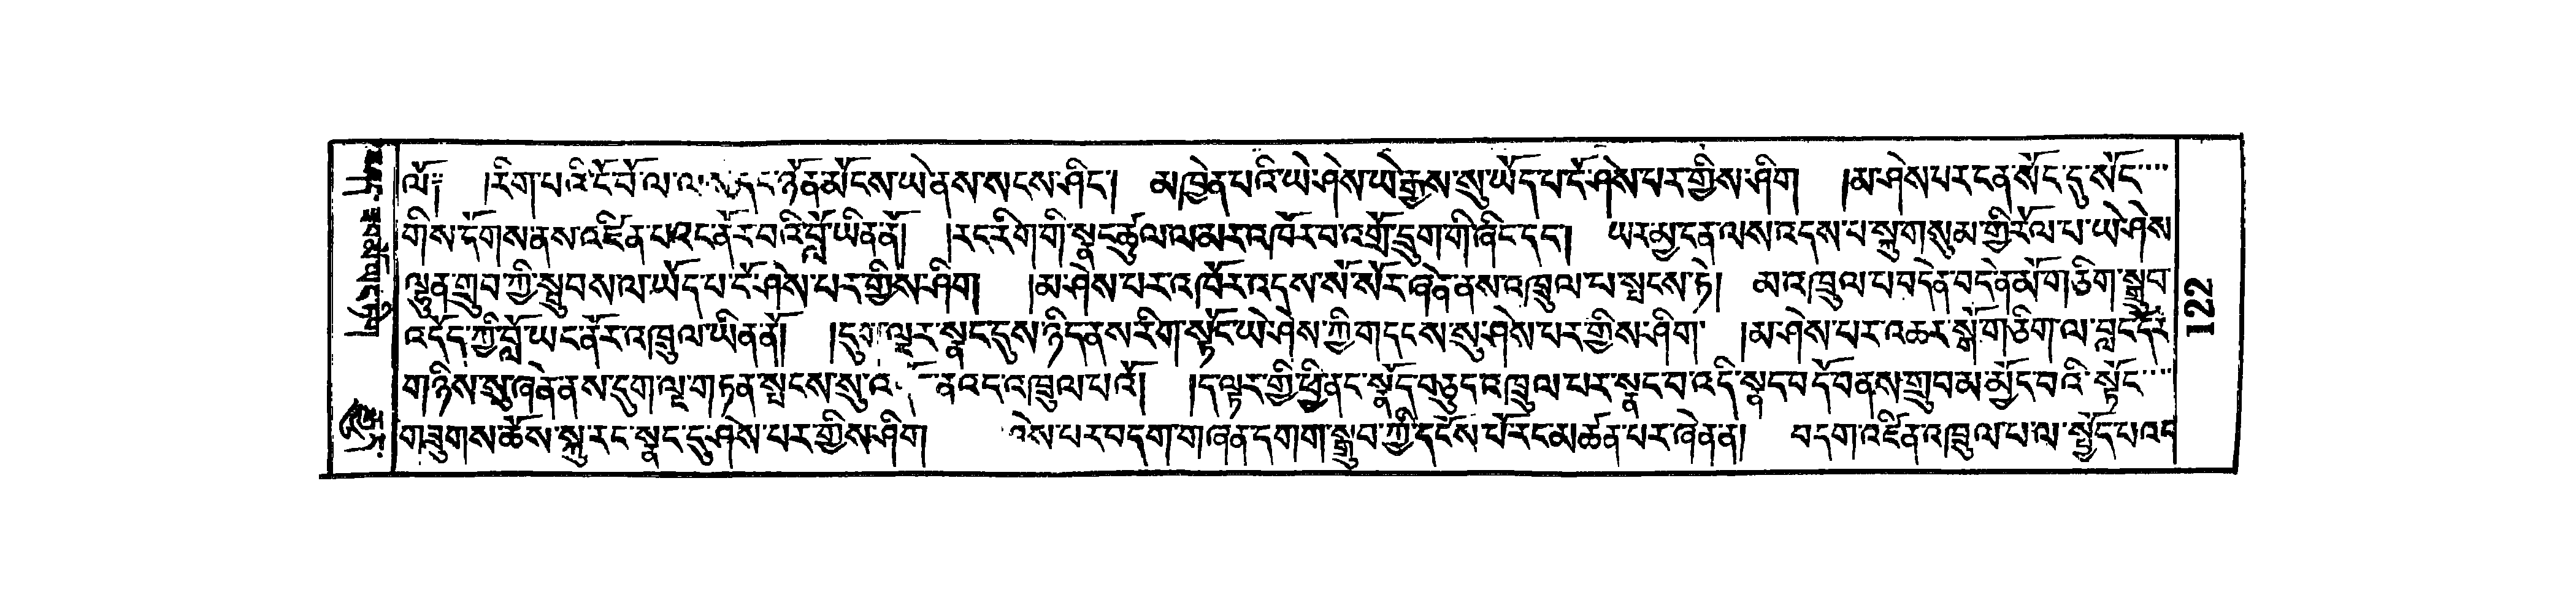 ལོ༔ །རིག་པའི་ངོ་བོ་ལ་ལས་དང་ཉོན་མོངས་ཡེ་ནས་སངས་ཤིང༌། མཁྱེན་པའི་ཡེ་ཤེས་ཡེ་རྒྱས་སུ་ཡོད་པ་ངོ་ཤེས་པར་གྱིས་ཤིག །མ་ཤེས་པར་ངན་སོང་དུ་སོང་
གིས་དོགས་ནས་འཛིན་པའང་ནོར་བའི་བློ་ཡིན་ནོ། །རང་རིག་གི་སྣང་ཚུལ་ལ་མར་འཁོར་བ་འགྲོ་དྲུག་གི་ཞིང་དང༌། ཡར་མྱ་ངན་ལས་འདས་པ་སྐུ་གསུམ་གྱི་རོལ་པ་ཡེ་ཤེས
ལྷུན་གྲུབ་ཀྱི་སྦུབས་ལ་ཡོད་པ་ངོ་ཤེས་པར་གྱིས་ཤིག །མ་ཤེས་པར་འཁོར་འདས་སོ་སོར་ཞེན་ནས་འཁྲུལ་པ་སྤངས་ཏེ། མ་འཁྲུལ་པ་བདེན་བདེན་མོ་ག་ཅིག་སྒྲུབ་
འདོད་ཀྱི་བློ་ཡང་ནོར་འཁྲུལ་ཡིན་ནོ། །དུག་ལྔར་སྣང་དུས་ཉིད་ནས་རིག་སྟོང་ཡེ་ཤེས་ཀྱི་གདངས་སུ་ཤེས་པར་གྱིས་ཤིག །མ་ཤེས་པར་འཆར་སྒོ་གཅིག་ལ་བླང་དོར་
གཉིས་སུ་ཞེན་ནས་དུག་ལྔ་གཏན་སྤངས་སུ་འ ནའང་འཁྲུལ་པའོ། །ད་ལྟར་གྱི་ཕྱི་ནང་སྣོད་བཅུད་འཁྲུལ་པར་སྣང་བ་འདི་སྣང་བ་དོ་བོ་ནས་གྲུབ་མ་མྱོང་བའི་སྟོང་
གཟུགས་ཆོས་སྐུ་རང་སྣང་དུ་ཤེས་པར་གྱིས་ཤིག ཤེས་པར་བདག་གཞན་དགག་སྒྲུབ་ཀྱི་དངོས་པོ་རང་མཚན་པར་ཞེན་ན། བདག་འཛིན་འཁྲུལ་པ་ལ་སྤྱོད་པའང